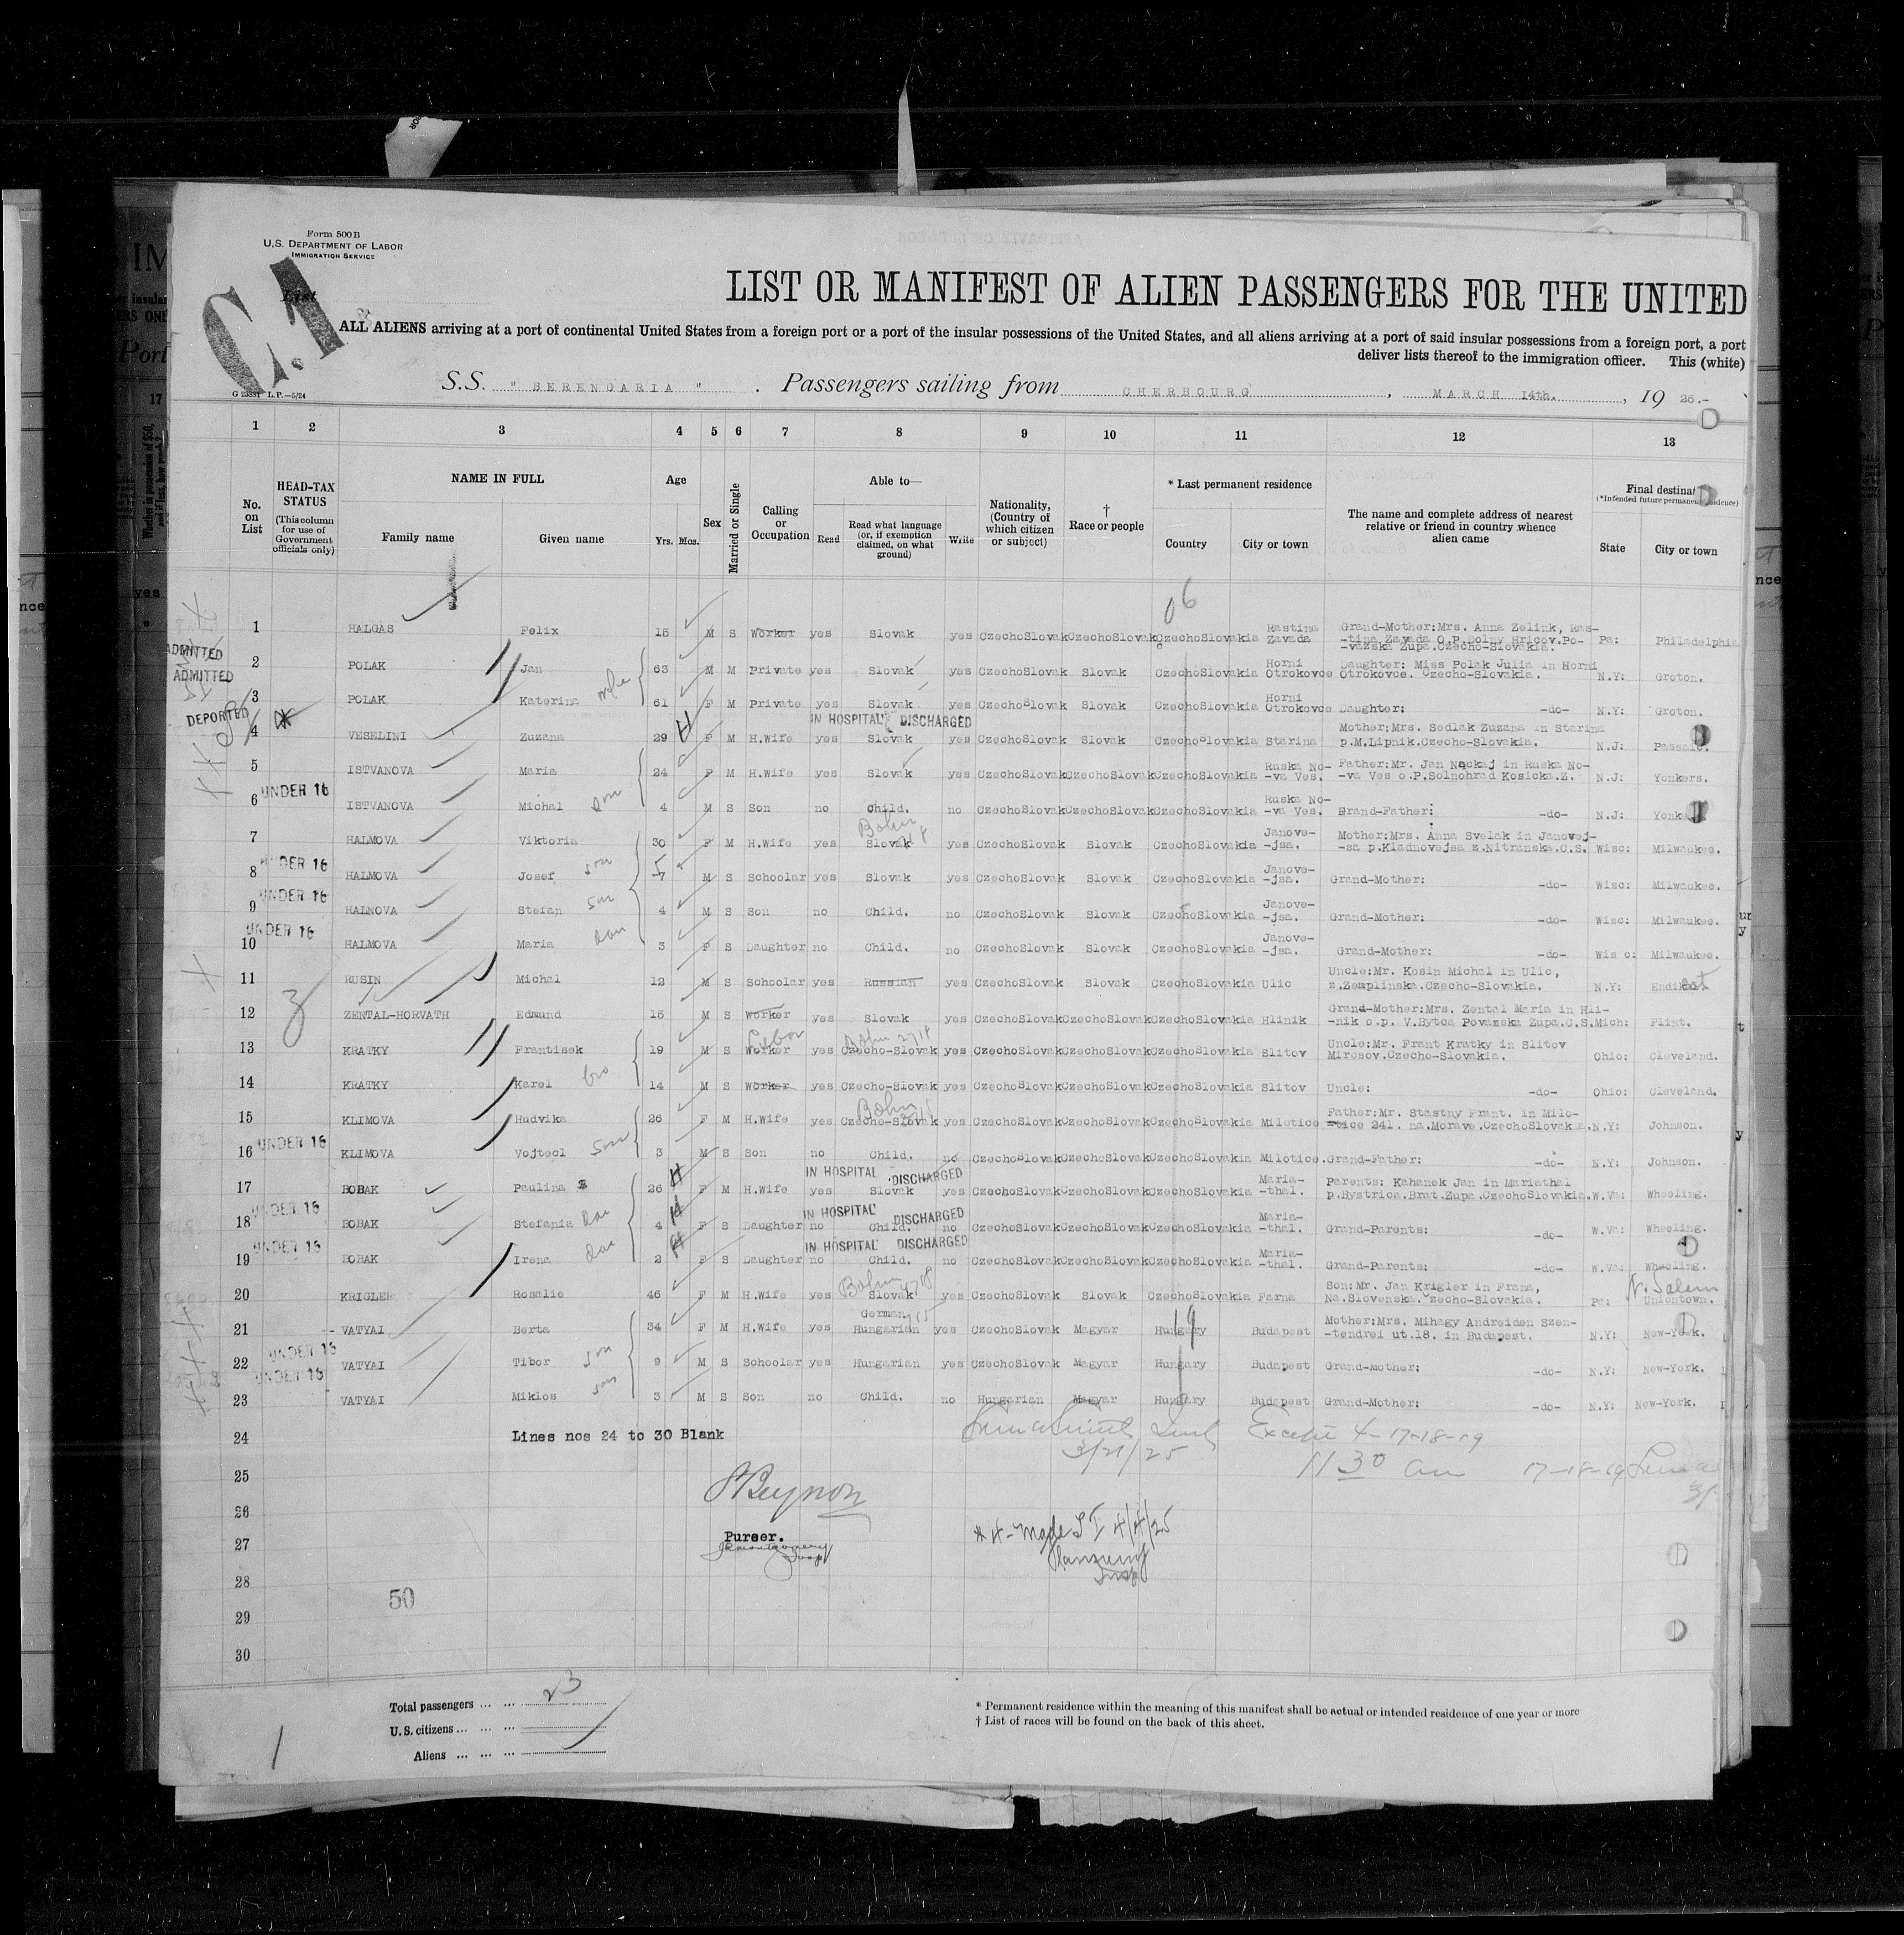 Form 500 B
U.S. DEPARTMENT OF LABOR
IMMIGRATION SERVICE
List
C.1
LIST OR MANIFEST OF ALIEN PASSENGERS FOR THE UNITED
ALL ALIENS arriving at a port of continental United States from a foreign port or a port of the insular possessions of the United States, and all aliens arriving at a port of said insular possessions from a foreign port, a port
deliver lists thereof to the immigration officer. This (white)
S.S. " BERENGARIA " . Passengers sailing from CHERBOURG , MARCH 14th. , 19 25.-
1 2 3 4 5 6 7 8 9 10 11 12 13
No. on List
HEAD-TAX STATUS
(This column for use of Government officials only)
NAME IN FULL
Family name Given name
Age
Yrs. Mos.
Sex
Married or Single
Calling or Occupation
Able to—
Read
Read what language (or, if exemption claimed, on what ground)
Write
Nationality, (Country of which citizen or subject)
† Race or people
* Last permanent residence
Country City or town
The name and complete address of nearest relative or friend in country whence alien came
Final destinat
(*Intended future permanent residence)
State City or town
06
1 HALGAS Felix 15 M S Worker yes Slovak yes CzechoSlovak CzechoSlovak CzechoSlovakia Rastina Zavada Grand-Mother:Mrs. Anna Zelink, Ras--tina Zavada O.P.Dolny Hricov.Po--vazska Zupa.Czecho-Slovakia. Pa: Philadelphia
ADMITTED
2 POLAK Jan 63 M M Private yes Slovak yes CzechoSlovak Slovak CzechoSlovakia Horni Otrokovce Daughter: Miss Polak Julia in Horni Otrokovce. Czecho-Slovakia. N.Y: Groton.
ADMITTED
3 POLAK Katerina wife 61 F M Private yes Slovak yes CzechoSlovak Slovak CzechoSlovakia Horni Otrokovce Daughter: -do- N.Y: Groton.
DEPORTED
IN HOSPITAL DISCHARGED
4 VESELINI Zuzana 29 H F M H.Wife yes Slovak yes CzechoSlovak Slovak CzechoSlovakia Starina Mother:Mrs. Sedlak Zuzana in Starina p.M.Lipnik.Czecho-Slovakia. N.J: Passaic.
5 ISTVANOVA Maria 24 F M H.Wife yes Slovak yes CzechoSlovak CzechoSlovak CzechoSlovakia Ruska No--va Ves. Father:Mr. Jan Nackaj in Ruska No--va Ves o.P.Solnohrad Kosicka.Z. N.J: Yonkers.
UNDER 16
6 ISTVANOVA Michal Son 4 M S Son no Child. no CzechoSlovak CzechoSlovak CzechoSlovakia Ruska No--va Ves. Grand-Father: -do- N.J:
7 HALMOVA Viktoria 30 F M H.Wife yes Slovak yes CzechoSlovak Slovak CzechoSlovakia Janove--jsa. Mother:Mrs. Anna Svelak in Janovej--sa p.Kladnovejsa z.Nitranska.C.S. Wisc: Milwaukee.
8 HALMOVA Josef son 7 M S Schoolar yes Slovak yes CzechoSlovak Slovak CzechoSlovakia Janove--jsa. Grand-Mother: -do- Wisc: Milwaukee.
UNDER 16
9 HALNOVA Stefan son 4 M S Son no Child. no CzechoSlovak Slovak CzechoSlovakia Janove--jsa. Grand-Mother: -do- Wisc: Milwaukee.
UNDER 16
10 HALMOVA Maria 3 F S Daughter no Child. no CzechoSlovak Slovak CzechoSlovakia Janove--jsa. Grand-Mother: -do- Wis c: Milwaukee.
11 RUSIN Michal 12 M S Schoolar yes Russian yes CzechoSlovak Slovak CzechoSlovakia Ulic Uncle:Mr. Kosin Michal in Ulic, z.Zemplinska.Czecho-Slovakia. N.Y:
12 ZENTAL-HORVATH Edmund 15 M S Worker yes Slovak yes CzechoSlovak CzechoSlovak CzechoSlovakia Hlinik Grand-Mother:Mrs. Zental Maria in Hli--nik o.p. V.Bytca Povazska Zupa.C.S. Mich: Flint.
13 KRATKY Frantisek 19 M S Worker yes Czecho-Slovak yes CzechoSlovak CzechoSlovak CzechoSlovakia Slitov Uncle:Mr. Frant Kratky in Slitov Mirosov.Czecho-Slovakia. Ohio: Cleveland.
14 KRATKY Karel bro 14 M S Worker yes Czecho-Slovak yes CzechoSlovak CzechoSlovak CzechoSlovakia Slitov Uncle: -do- Ohio: Cleveland.
15 KLIMOVA Hudvika 26 F M H.Wife yes Czecho-Slovak yes CzechoSlovak CzechoSlovak CzechoSlovakia Milotice Father:Mr. Stastny Frant. in Milo--tice 241. na.Morave.CzechoSlovakia. N.Y: Johnson.
UNDER 16
16 KLIMOVA Vojtecl Son 3 M S Son no Child. no CzechoSlovak CzechoSlovak CzechoSlovakia Milotice. Grand-Father: -do- N.Y: Johnson.
IN HOSPITAL DISCHARGED
17 BOBAK Paulina 26 H F M H.Wife yes Slovak yes CzechoSlovak CzechoSlovak CzechoSlovakia Maria--thal. Parents: Kahanek Jan in Mariathal p.Bystrica.Brat.Zupa.CzechoSlovakia. W.Va: Wheeling.
IN HOSPITAL DISCHARGED
18 BOBAK Stefania Dau 4 H F S Daughter no Child. no CzechoSlovak CzechoSlovak CzechoSlovakia Maria--thal. Grand-Parents: -do- W.Va: Wheeling.
UNDER 16
IN HOSPITAL DISCHARGED
19 BOBAK Irena dau 2 H F S Daughter no Child. no CzechoSlovak CzechoSlovak CzechoSlovakia Maria--thal. Grand-Parents: -do- W.Va: Wheeling.
20 KRIGLER Rosalie 46 F M H.Wife yes Slovak yes CzechoSlovak Slovak CzechoSlovakia Farna Son:Mr. Jan Krigler in Frana, Na.Slovenska. Czecho-Slovakia. Pa: Uniontown. N. Salem
21 VATYAI Berta 34 F M H.Wife yes German Hungarian yes CzechoSlovak Magyar Hungary Budapest Mother:Mrs. Mihagy Andreiden Szen--tendrei ut.18. in Budapest. N.Y: New-York.
UNDER 16
22 VATYAI Tibor son 9 M S Schoolar yes Hungarian yes CzechoSlovak Magyar Hungary Budapest Grand-Mother: -do- N.Y: New-York.
UNDER 16
23 VATYAI Miklos son 3 M S Son no Child. no Hungarian Magyar Hungary Budapest Grand-Mother: -do- N.Y: New-York.
24 Lines nos 24 to 30 Blank
Except 4-17-18-19
3/21/25 11 30 am 17-18-19
25
26
27
28
29
30
Beynon
Purser.
4/4/25
50
Total passengers ... ... 23
U.S. citizens ... ... ...
Aliens ... ... ...
* Permanent residence within the meaning of this manifest shall be actual or intended residence of one year or more
† List of races will be found on the back of this sheet.